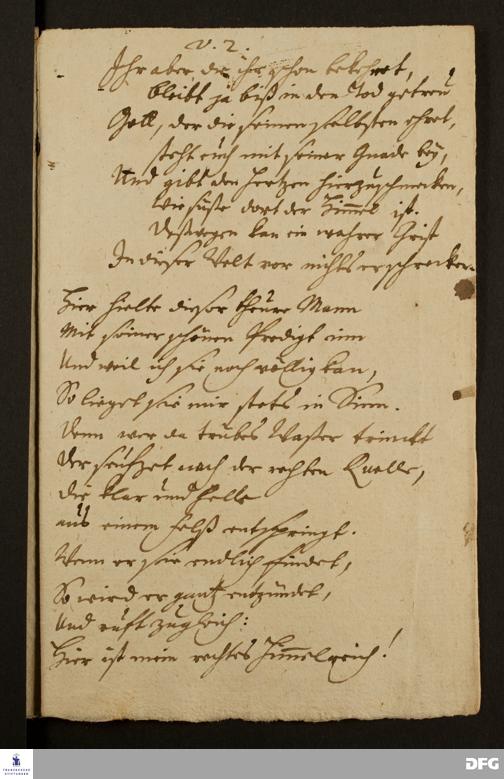 v. 2.
Ihr aber, die ihr schon bekehret,
bleibt ja biß in den Tod getreu
Gott, der die seinen selbsten ehret,
steht euch mit seiner Gnade bey,
Und gibt den Hertzen hier zu schmecken,
wie süße dort der Himel ist.
Deßwegen kan ein wahrer Christ
In dieser Welt vor nichts erschrecken.
Hier hielte dieser theure Mann
Mit seiner schönen Predigt inn
Und weil ich sie noch völlig kan,
So lieget sie mir stets in Sinn.
Denn wer da trübes Waßer trinckt
Der seüfzet nach der rechten Quelle,
die klar und helle
aus einem Felß entspringt.
Wenn er sie endlich findet,
So wird er gantz entzündet,
Und rufft zugleich:
Hier ist mein rechtes Himelreich!
FRANCKESCHE STIFTUNGEN
DFG